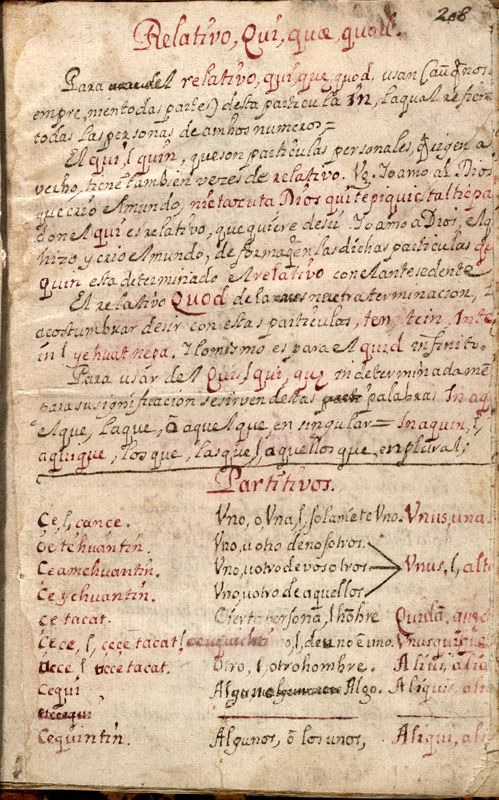 206
Relativo, Qui, quæ, quod.
Para el relativo, qui, que, quod, usan (aũq̃ no si
empre, nientodas partes) desta particula In, la qual refiere
todas las personas de ambos numeros =
El qui, l, quin, que son particulas personales, q̃ rigen a
verbo, tiene tambien vezes de relativo. Vg. Yo amo al Dios
que crio el mundo, nictasuta Dios qui tepiquic taltiepa
don el qui es relativo, que quiere desir Yo amo a Dios, el q
hizo y crio el mundo, de forma q̃ en las dichas particulas q
quin esta determinado el relativo con el antesedente
El relativo Quod de la neutra terminacion,
acostumbrar desir con estas particulas, ten, tein, Inte
in l yehuat nepa. Y lo mismo es para el quid infinito.
Para usar del Quis l qui, quæ indeterminadamẽ
para su significacion se sirven destas palabras In aq
el que, la que, ō aquel que, en singular = In aquin, l,
aquique, los que, las que, l aquellos que, en plural;
Partitivos.
Ce, l, cance. Vno, o, Vna, l, solamẽte Vno. Vnus, una
Ce tehuantin. Vno, u otro de nosotros
Ce amehuantin. Vno, u otro de vosotros Vnus, l, alte
Ce yehuantin. Vno, u otro de aquellos
Ce tacat. Cierta persona, l hõbre Quidã, quæ
Cece, l, cece tacat l o, l, de uno ẽ uno. Vnusquisque
Occe l occe tacat. Otro, l, otro hombre. Alius, alia
Cequi Algo. Aliquis, ali
Cequintin. Algunos, ō los unos, Aliqui, ali